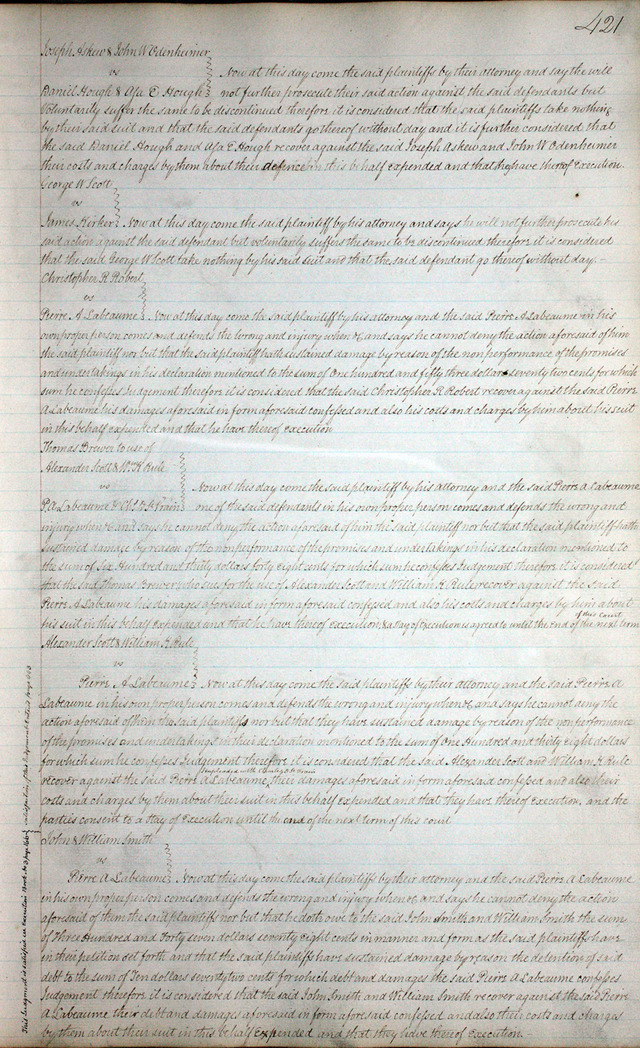 421
Joseph Askew & John W Odenheimer
vs
Now at this day come the said plaintiffs by their attorney and say the will
Daniel Hough & Asa E Hough not further prosecute their said action against the said defendants but
Voluntarily suffer the same to be discontinued therefore it is considered that the said plaintiffs take nothing
by their said suit and that the said defendants go thereof without day and it is further considered that
the said Daniel Hough and Asa E Hough recover against the said Joseph Askew and John W Odenheimer
their costs and charges by them about their defence in this behalf expended and that they have thereof execution
George W Scott
vs
James Kerker Now at this day come the said plaintiff by his attorney and says he will not further prosecute his
said action against the said defendant but voluntarily suffers the same to be discontinued therefore it is considered
that the said George W Scott take nothing by his said suit and that the said defendant go thereof without day.-
Christopher R Robert
vs
Pierre A Labeaume Now at this day come the said plaintiff by his attorney and the said Pierre A Labeaume in his
own proper person comes and defends the wrong and injury when &c and says he cannot deny the action aforesaid of him
the said plaintiff nor but that the said plaintiff hath sustained damage by reason of the non performance of the promises
and undertakings in his declaration mentioned to the sum of One hundred and fifty three dollars seventy two cents for which
sum he confesses Judgement therefore it is considered that the said Christopher R Robert recover against the said Pierre
A Labeaume his damages aforesaid in form aforesaid confessed and also his costs and charges by him about his suit
in this behalf expended and that he have thereof execution
Thomas Brewer to use of
Alexander Scott & W K Rule
vs
Now at this day come the said plaintiff by his attorney and the said Pierre A Labeaume
P. A. Labeaume & one of the said defendants in his own proper person comes and defends the wrong and
injury when &c and says he cannot deny the action aforesaid of him the said plaintiff nor but that the said plaintiff hath
sustained damage by reason of the nonperformance of the promises and undertakings in his declaration mentioned to
the sum of Six Hundred and thirty dollars forty eight cents for which sum he confesses Judgement therefore it is considered
that the said Thomas Brewer who sues for the use of Alexander Scott and William K Rule recover against the said
Pierre A Labaume his damages aforesaid in form aforesaid confessed and also his costs and charges by him about
his suit in this behalf expended and that he have thereof execution & a stay of execution is agreed to until the End of the next term
of this Court
Alexander Scott & William K Rule
vs
Pierre A Labeaume Now at this day come the said plaintiffs by their attorney and the said Pierre A
Labeaume in his own proper person comes and defends the wrong and injury when &c and says he cannot deny the
action aforesaid of them the said plaintiffs nor but that they have sustained damage by reason of the non performance
of the promises and undertakings in their declaration mentioned to the sum of One Hundred and thirty eight dollars
for which sum he confesses Judgement therefore it is considered that the said Alexander Scott and William K Rule
recover against the said Pierre A Labeaume their damages aforesaid in form aforesaid confessed and also their
costs and charges by them about their suit in this behalf expended and that they have thereof execution, and the
parties consent to a stay of Execution until the end of the next term of this court
John & William Smith
vs
Pierre A Labeaume Now at this day come the said plaintiffs by their attorney and the said Pierre A Labeaume
in his own proper person comes and defends the wrong and injury when &c, and says he cannot deny the action
aforesaid of them the said plaintiffs nor but that he doth owe to the said John Smith and William Smith the sum
of Three Hundred and Forty seven dollars seventy eight cents in manner and form as the said plaintiffs have
in their petition set forth and that the said plaintiffs have sustained damage by reason the detention of said
debt to the sum of Ten dollars seventy two cents for which debt and damages the said Pierre A Labeaume confesses
Judgement therefore it is considered that the said John Smith and William Smith recover against the said Pierre
A Labeaume their debt and damages aforesaid in form aforesaid confessed and also their costs and charges
by them about their suit in this behalf expended and that they have thereof Execution.-
This Judgment is satisfied see execution Book
satisfaction of this Judgment